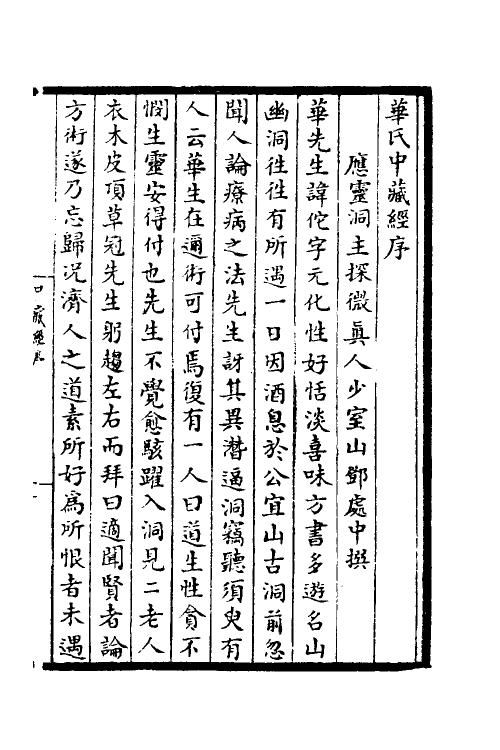 華氏中藏經序
應靈洞主探微真人少室山鄧處中撰
華先生諱佗字元化性好恬淡喜味方書多遊名山
幽洞徃徃有所遇一日因酒息於公宜山古洞前忽
聞人論療病之法先生訝其異潛逼洞竊聽須臾有
人云華生在邇術可付焉復有一人曰道生性貪不
憫生靈安得付也先生不覺愈駭躍入洞見二老人
衣木皮頂草冠先生躬趨左右而拜曰適聞賢者論
方術遂乃忘歸况濟人之道素所好為所恨者未遇